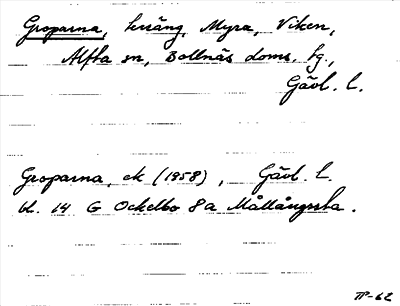 Groparna, terräng, Myra, Viken,
Alfta sn, Bollnäs doms. fg.,
Gävl. l.
Groparna, ek (1958), Gävl. l.
bl. 14 G Ockelbo 8a Mållångssta.
TP-62